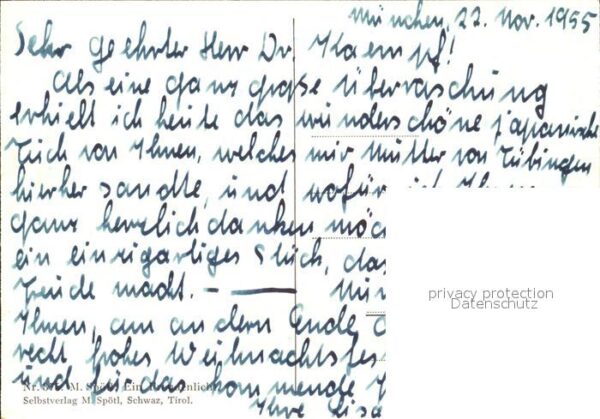 München, 22. Nov. 1955
Sehr geehrter Herr Dr. Kaempf!
Als eine ganz große Überraschung
erhielt ich heute das wunderschöne japanische
Tuch von Ihnen, welches mir Mutter von Tübingen
hierher sandte, und wofür ich Ihnen
ganz herzlich danken möc
ein einzigartiges Stück, das
Freude macht. —
Ihnen, am andern Ende
recht frohes Weihnachtsfes
und für das kommende J
Ihre Lisa
Nr. M. Spötl: Ein
Selbstverlag M. Spötl, Schwaz, Tirol.
privacy protection
Datenschutz